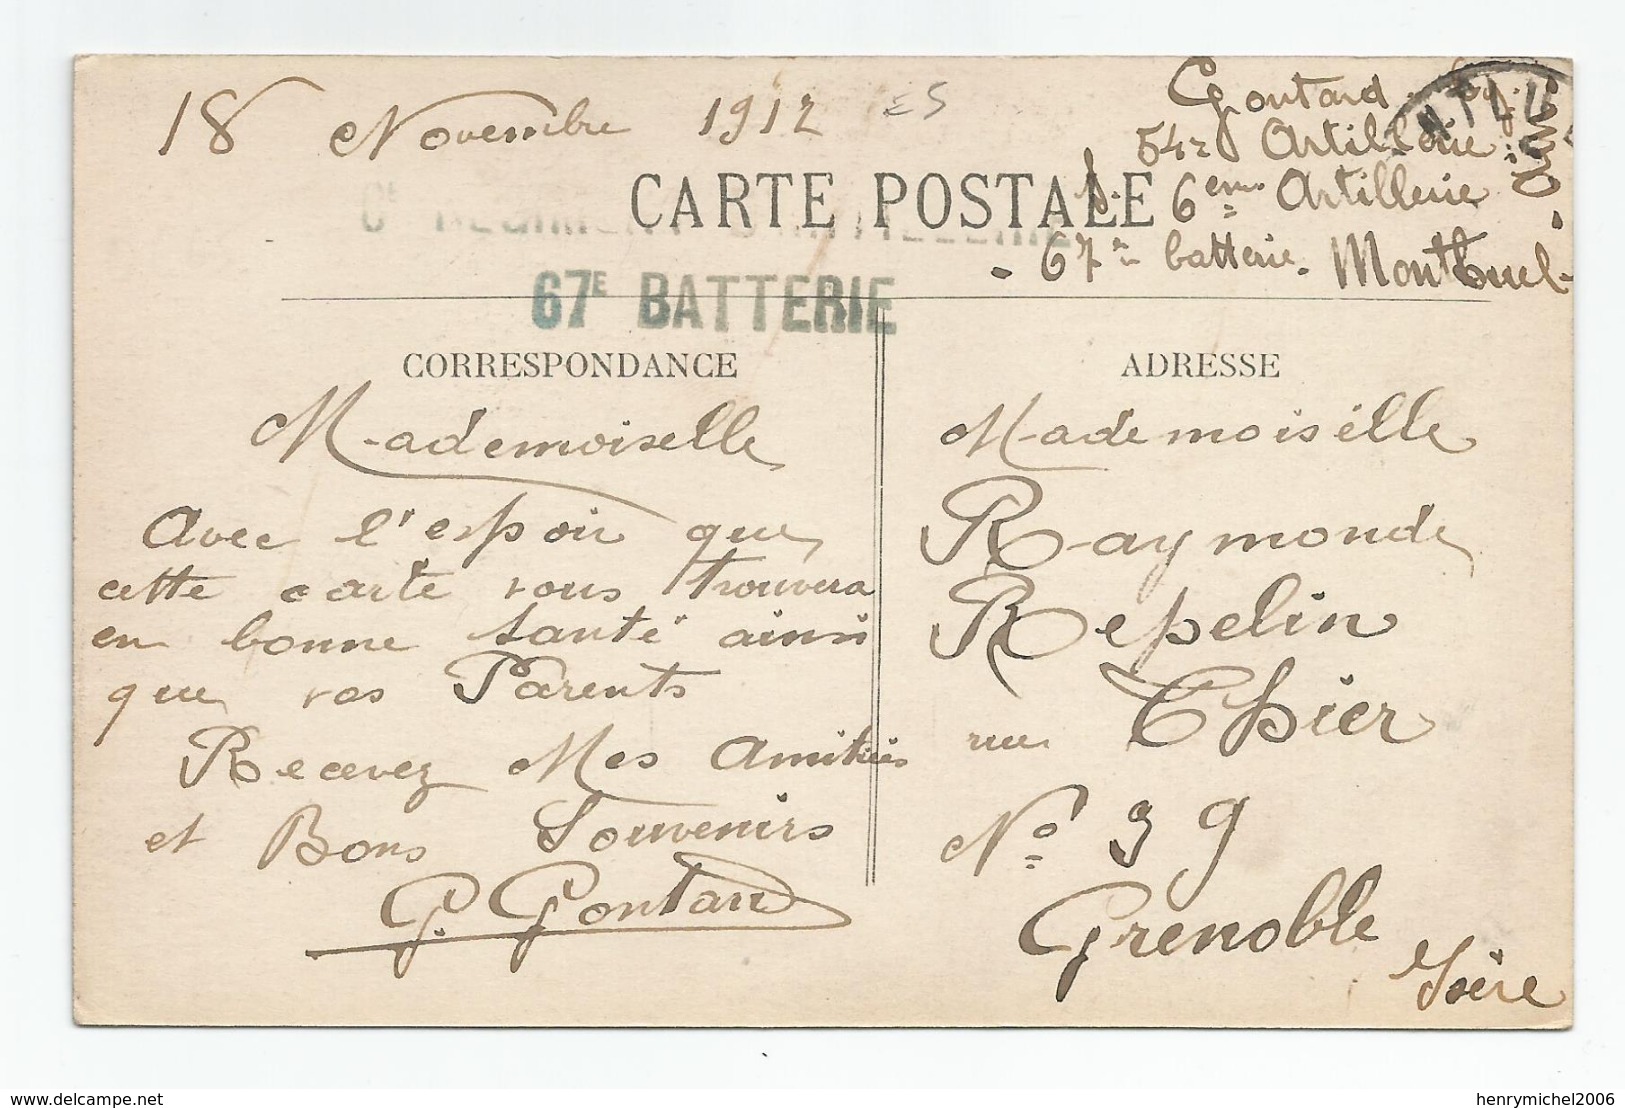 18 Novembre 1912 ES
Goutard
54e Artillerie
6em Artillerie
67e batterie. Montluel.
CARTE POSTALE
67E BATTERIE
CORRESPONDANCE
Mademoiselle
Avec l'espoir que
cette carte vous trouvera
en bonne santé ainsi
que vos Parents
Recevez Mes Amitiés
et Bons Souvenirs
G. Goutard
ADRESSE
Mademoiselle
Raymonde
Repelin
rue Thier
No 39
Grenoble
Isère
delcampe.net
henrymichel2006